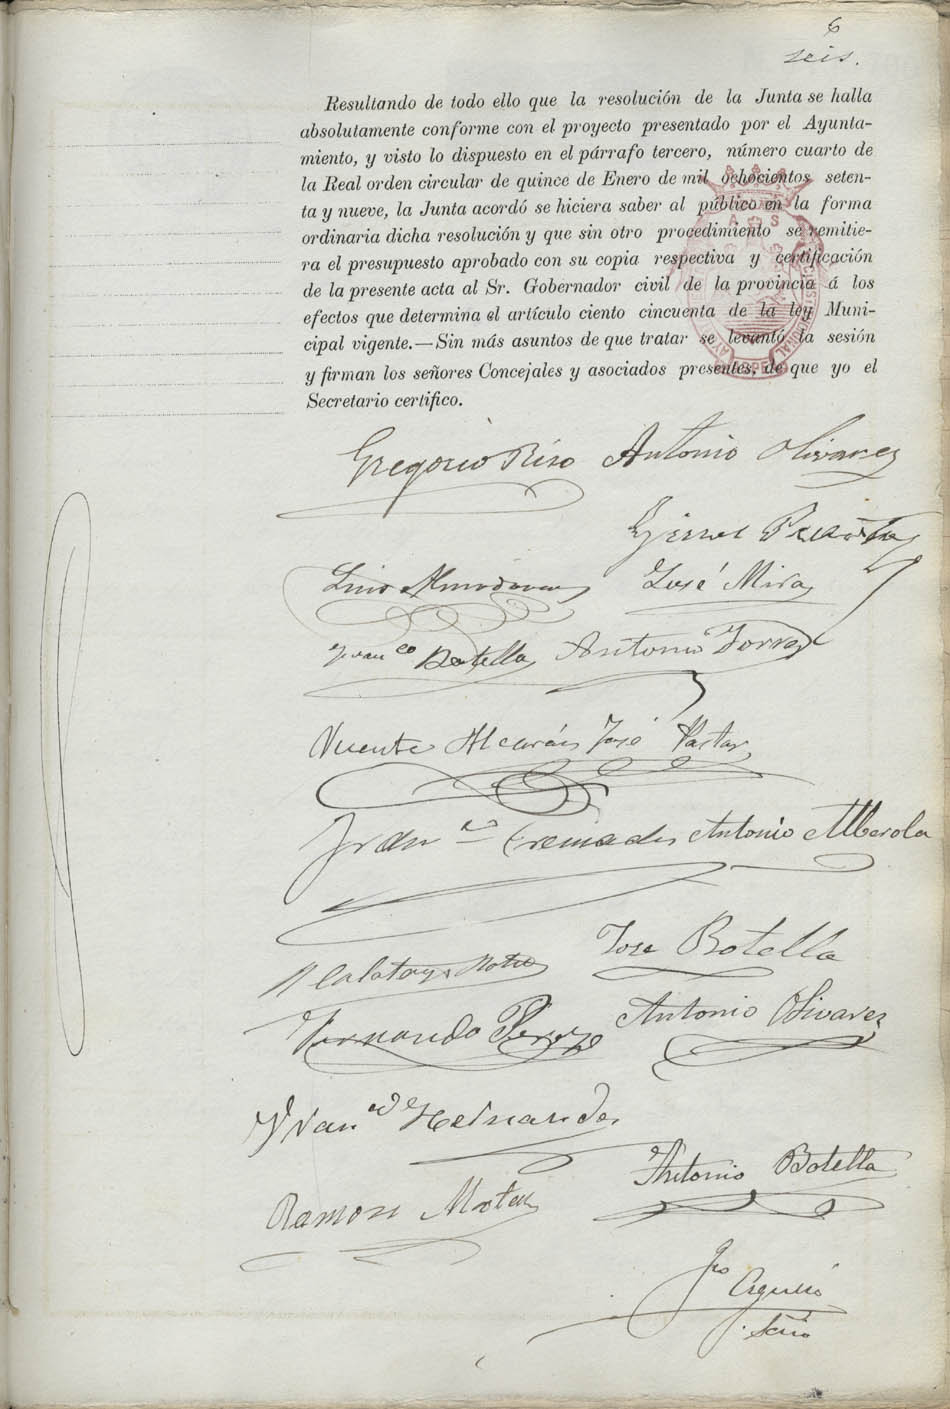 6
seis.
Resultando de todo ello que la resolución de la Junta se halla
absolutamente conforme con el proyecto presentado por el Ayunta-
miento, y visto lo dispuesto en el párrafo tercero, número cuarto de
la Real orden circular de quince de Enero de mil ochocientos seten-
ta y nueve, la Junta acordó se hiciera saber al público en la forma
ordinaria dicha resolución y que sin otro procedimiento se remitie-
ra el presupuesto aprobado con su copia respectiva y certificación
de la presente acta al Sr. Gobernador civil de la provincia á los
efectos que determina el artículo ciento cincuenta de la ley Muni-
cipal vigente.—Sin más asuntos de que tratar se levantó la sesión
y firman los señores Concejales y asociados presentes, de que yo el
Secretario certifico.
Gregorio Rizo Antonio Olivares
Lino Almodovar José Mira
Franco Botella Antonio Torres
Vicente Alcaráz José Pastor
Franco Cremades Antonio Alberola
José Botella
Fernando Pérez Antonio Olivares
Franco Hernandez
Antonio Botella
Ramon
Agulló
Srio